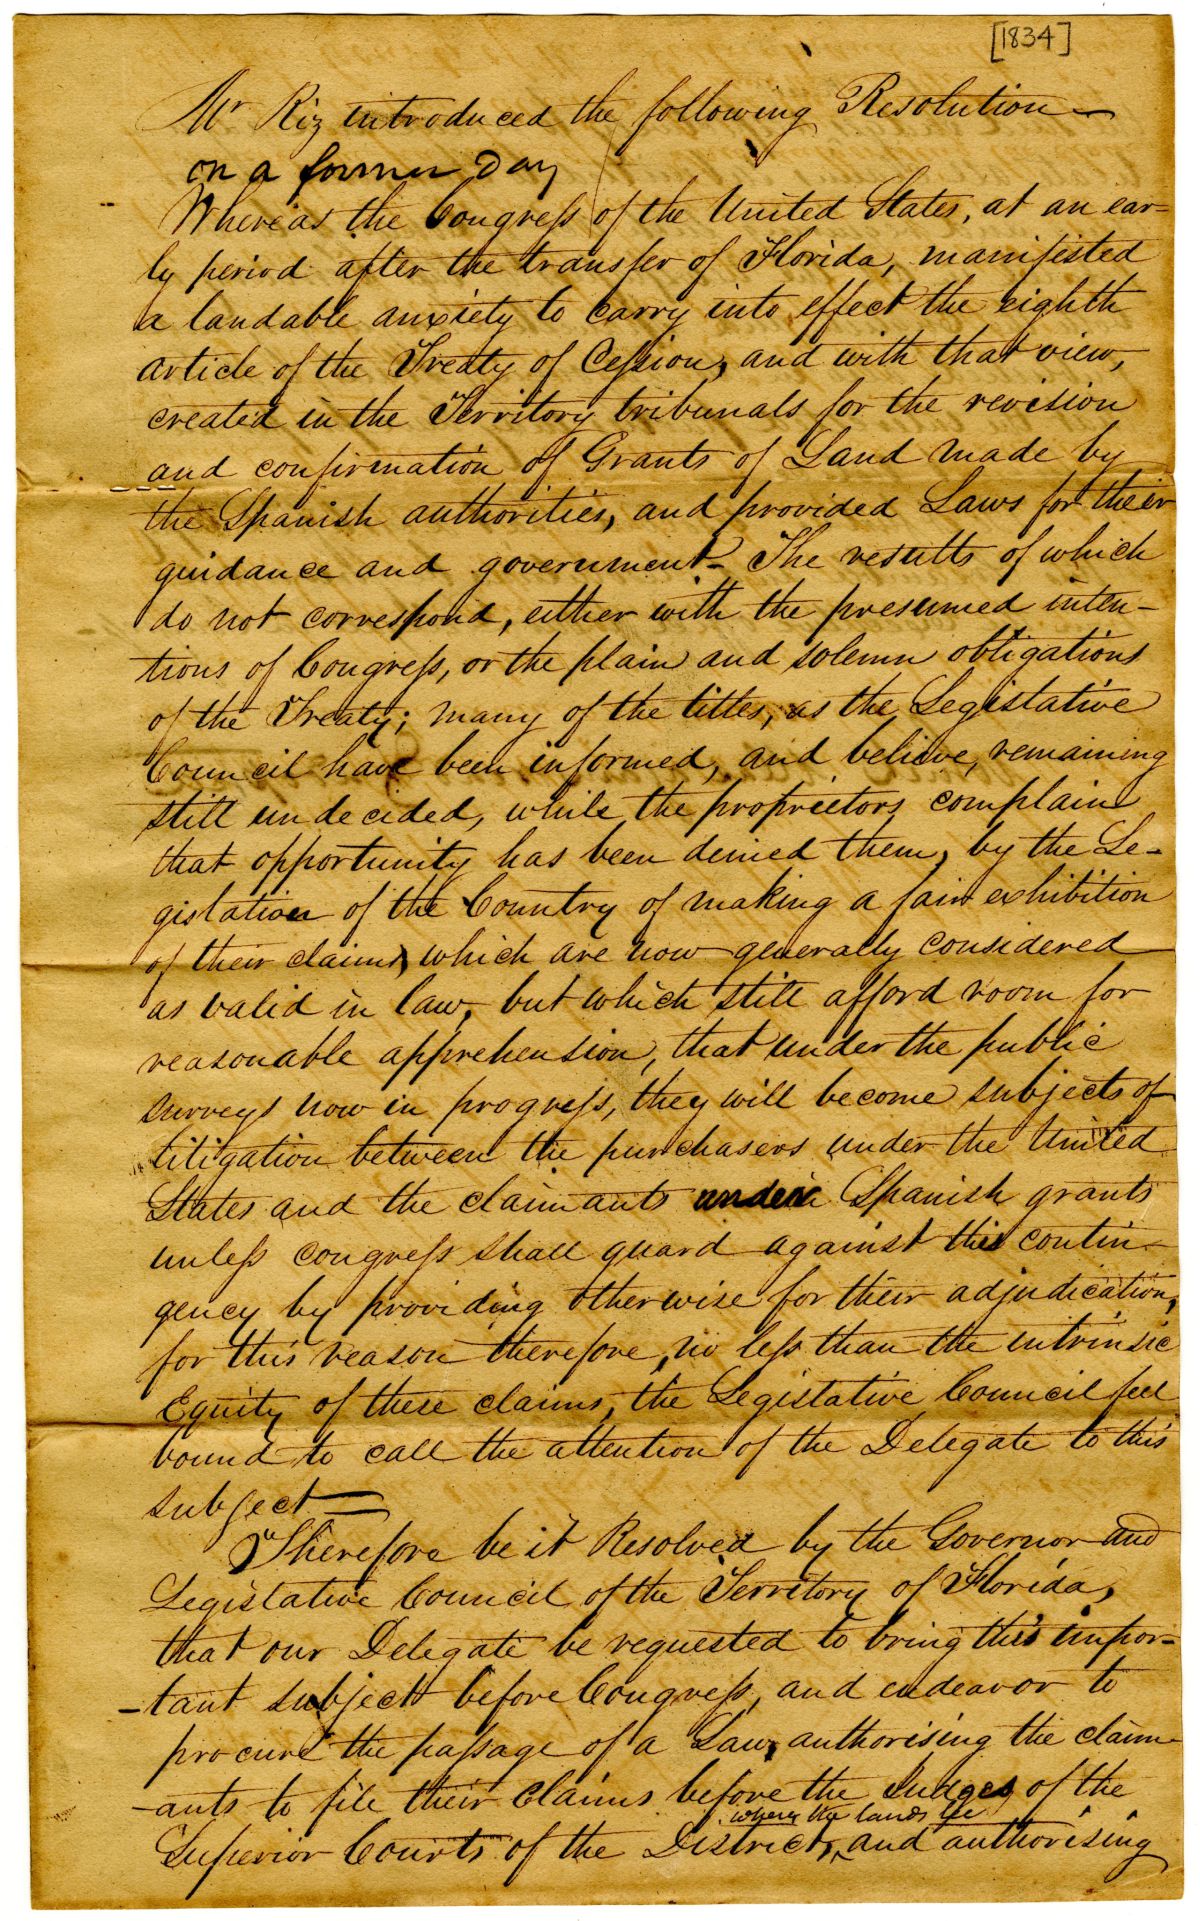 [1834]
Mr Riz introduced the following Resolution
on a former Day
Whereas the Congress of the United States, at an ear-
ly period after the transfer of Florida, manifested
a laudable anxiety to carry into effect the eighth
article of the Treaty of Cession, and with that view,
created in the Territory tribunals for the revision
and confirmation of Grants of Land made by
the Spanish authorities, and provided Laws for their
guidance and government - The results of which
do not correspond, either with the presumed inten-
tions of Congress, or the plain and solemn obligations
of the Treaty; many of the titles, as the Legislative
Council have been informed, and believe, remaining
still undecided, while the proprietors complain
that opportunity has been denied them, by the Le-
gislation of the Country of making a fair exhibition
of their claims, which are now generally considered
as valid in law, but which still afford room for
reasonable apprehension, that under the public
surveys now in progress, they will become subjects of
litigation between the purchasers under the United
States and the claimants under Spanish grants
unless congress shall guard against this contin-
gency by providing otherwise for their adjudication,
for this reason therefore, no less than the intrinsic
Equity of these claims, the Legislative Council feel
bound to call the attention of the Delegate to this
subject—
Therefore be it Resolved by the Governor and
Legislative Council of the Territory of Florida,
that our Delegate be requested to bring this impor-
-tant subject before Congress, and endeavor to
procure the passage of a Law, authorising the claim-
-ants to file their Claims before the Judges of the
where the lands lie
Superior Courts of the District, and authorising